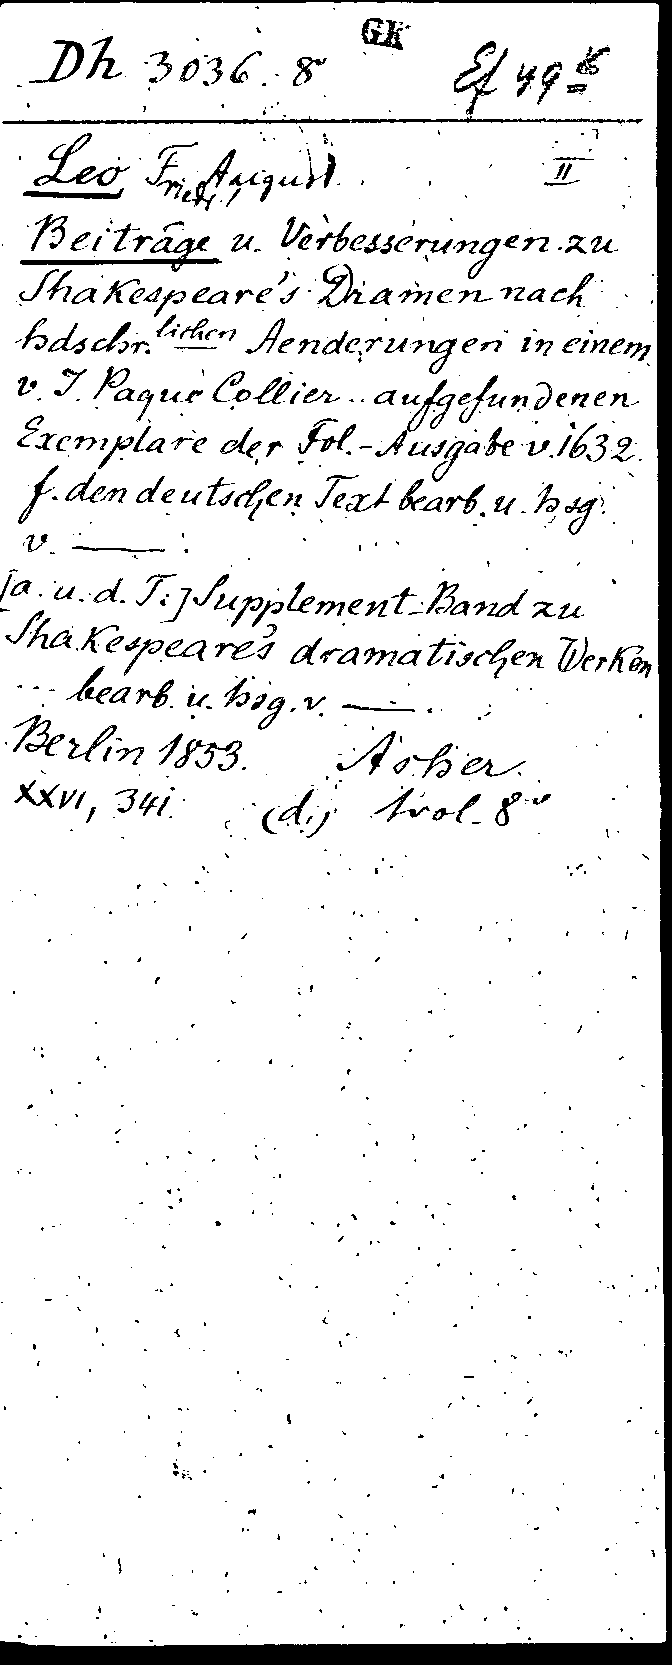 GK
Dh 3036. 8° Ef 49
Leo, Friedr. August. II
Beiträge u. Verbesserungen zu
Shakespeare's Dramen nach
hdschr.lichen Aenderungen in einem
v. J. Paque Collier .. aufgefundenen
Exemplare der Fol.-Ausgabe v. 1632
f. den deutschen Text bearb. u. hsg.
v. ——.
[a. u. d. T.:] Supplement-Band zu
Shakespeare's dramatischen Werken
... bearb. u. hsg. v. ——.
Berlin 1853. Asher.
XXVI, 341. (d.) 1 vol. 8°